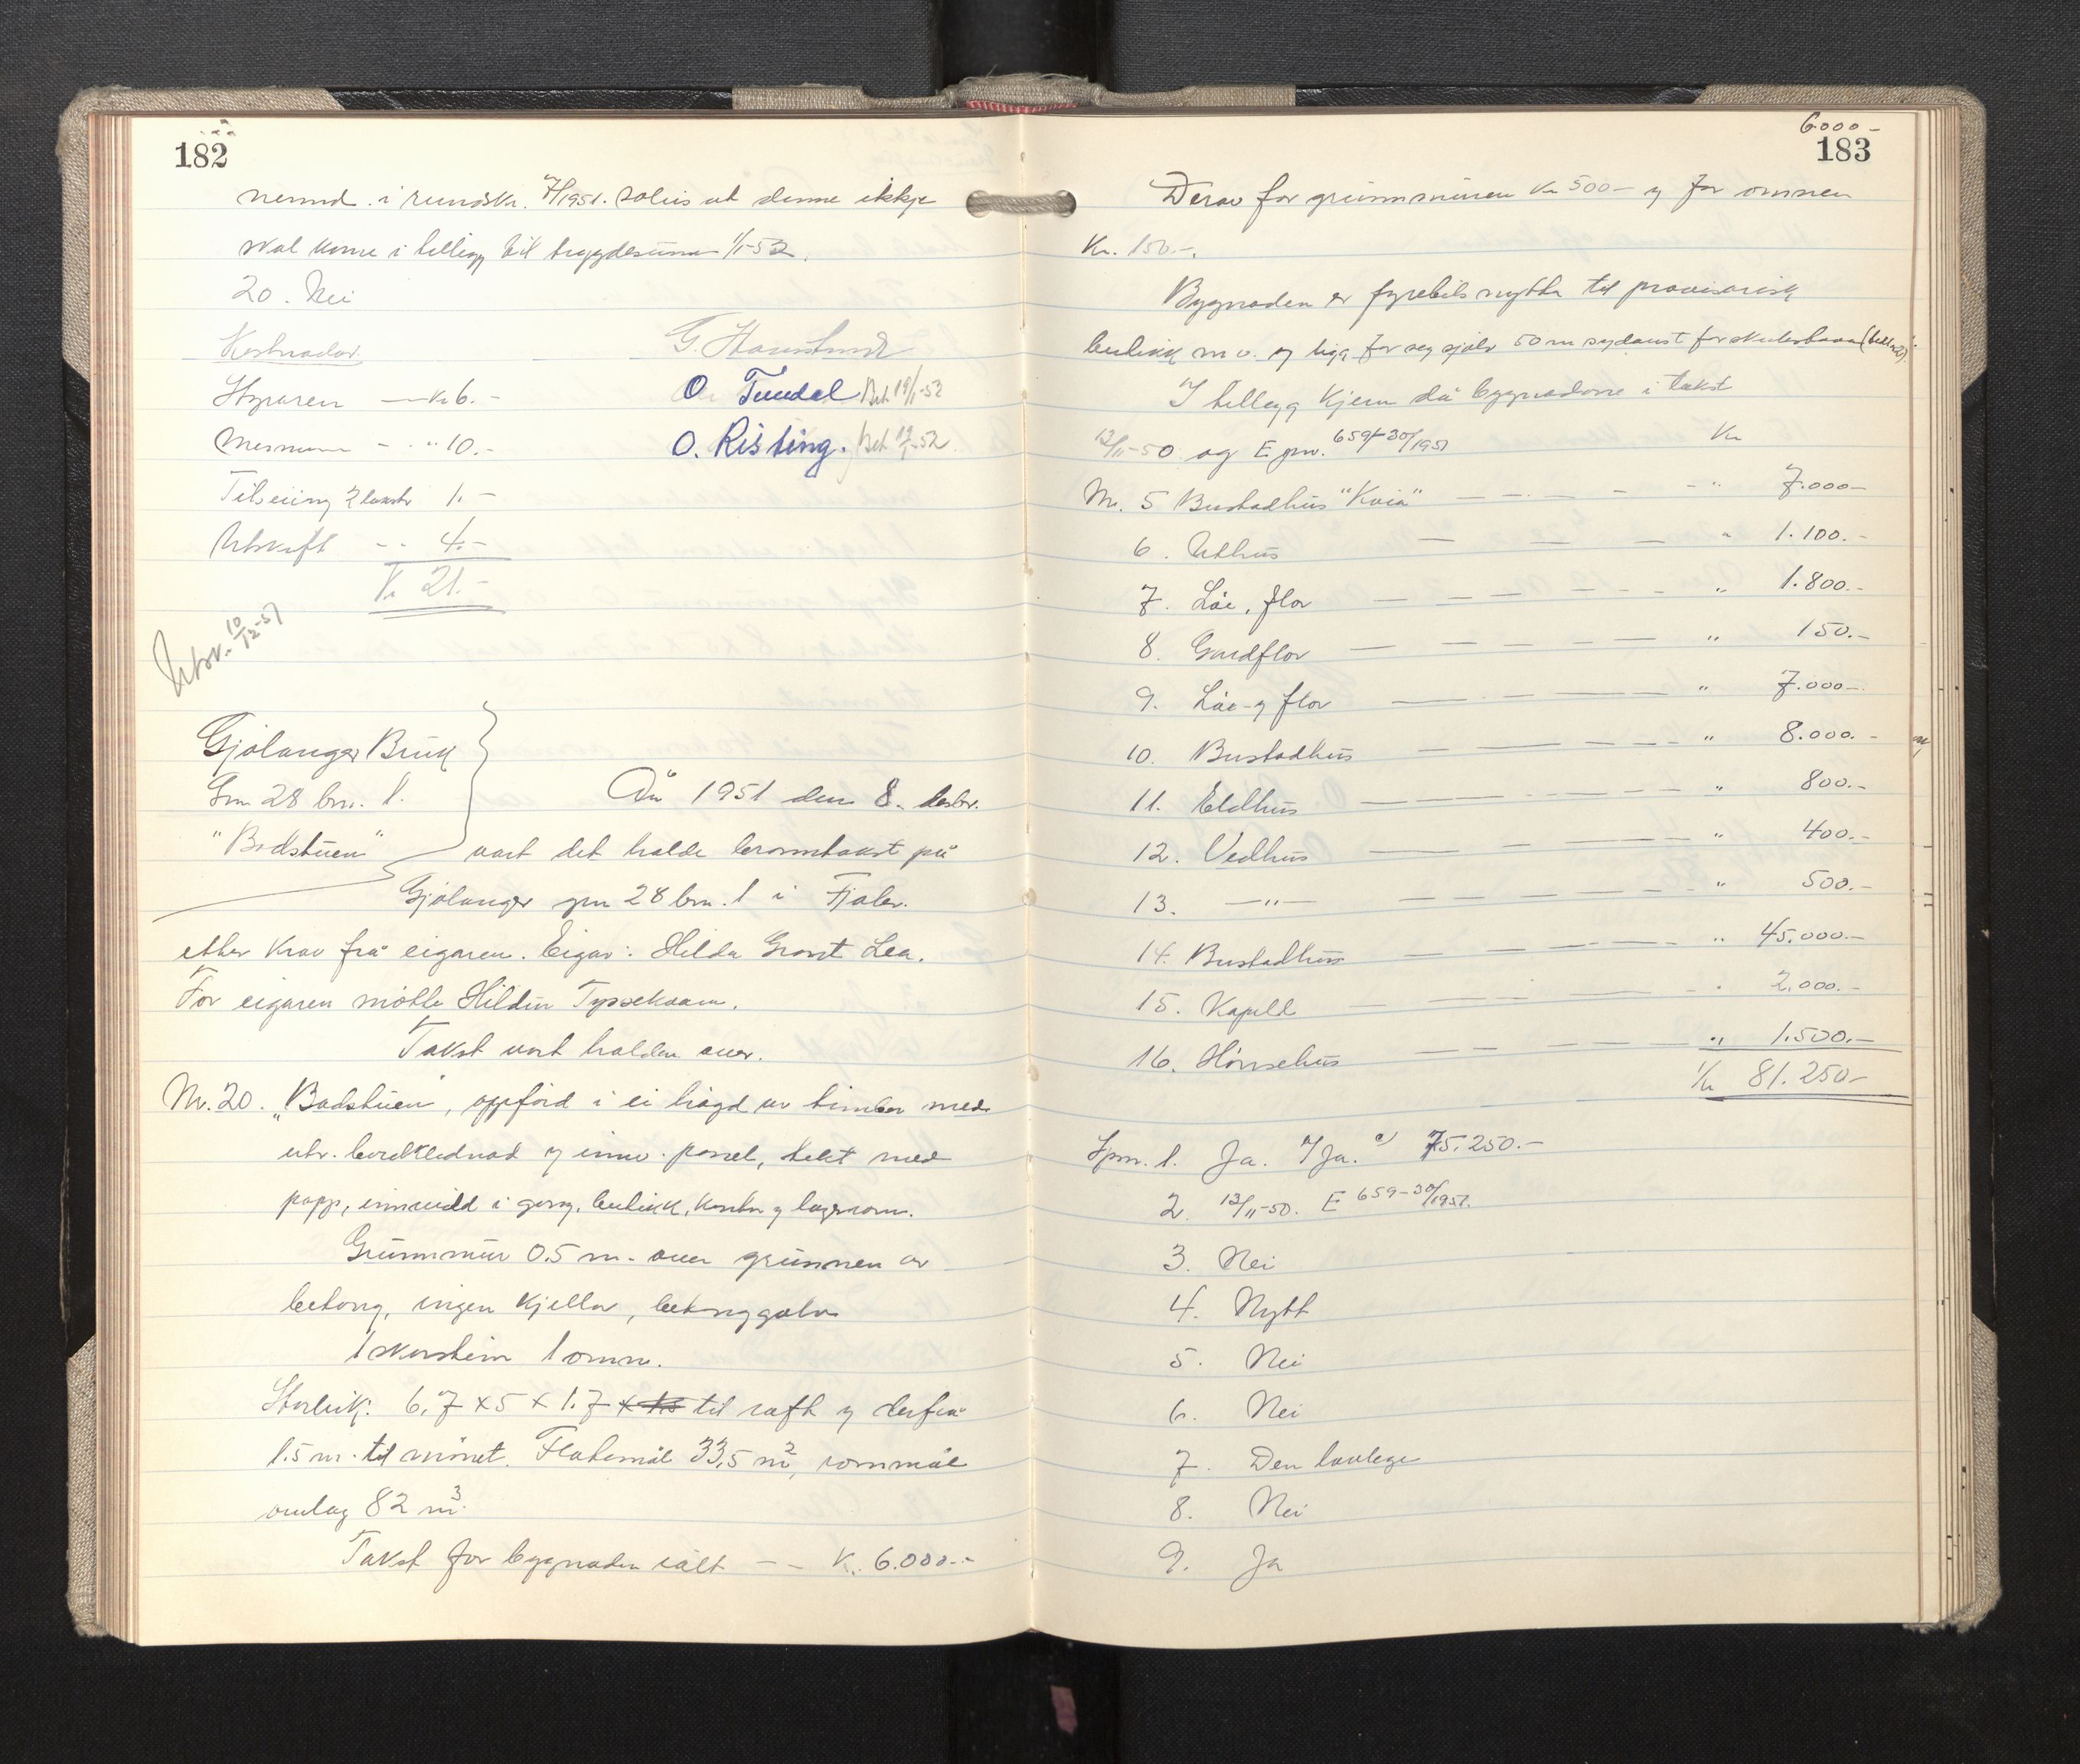 182
nemnd i rundskr. 7/1951. solis at denne ikkje
skal kome i tillegg til trygdesumen 1/1-52.
20. Nei
Kostnader.
G. Haustund
Styraren — Kr 6.-
O. Tundal Bet 19/1-52
Mesmenn - - " 10.-
O. Risting. Bet 19/1-52.
Tilseiing 2 takstm 1.-
Utskrift - - 4.-
Kr 21.-
Utskr. 10/12-51
Gjølanger Bruk
Gnr 28 bnr. 1.
"Badstuen"
År 1951 den 8. desbr.
vart det halde branntakst på
Gjølanger gnr 28 bnr. 1 i Fjaler.
etter krav frå eigaren. Eigar: Hilda Grovt Lea.
For eigaren møtte Hildin Tyssekvam.
Takst vart halden over.
Nr. 20. "Badstuen", oppförd i ei högd av timber med
utv. bordklednad og innv. panel, tekt med
papp, innreidd i gang, butikk, kontor og lagerrom.
Grunnmur 0.5 m. over grunnen av
betong, ingen kjellar, betonggolv
1 skorstein 1 omn.
Storleik: 6.7 x 5 x 1.7 til raft og derfrå
1.5 m. til mönet. Flatemål 33,5 m², rommål
omlag 82 m³.
Takst for bygnaden i alt — — Kr. 6.000.-
6000 -
183
Derav for grunnmuren Kr 500 - og for omnen
Kr. 150.-.
Bygnaden er fyrebils nytta til provisorisk
butikk m v. og ligg for seg sjølv 50 m sydaust for
I tillegg kjem då bygnadene i takst
13/11-50 og E pnr. 659-30/1951
Kr
Nr. 5 Bustadhus "Kvia" — — — - " 7.000-
6. Uthus — — — " 1.100.-
7. Löe, flor — — — - - " 1.800.-
8. Geudflor — — — — " 150.-
9. Löe- og flor — — — — " 7.000-
10. Bustadhus — — — — " 8.000.-
11. Eldhus — — — — " 800.-
12. Vedhus — — — — " 400.-
13. —"— — — — — " 500.-
14. Bustadhus — — — — " 45.000.-
15. Kapell — — — — " 2.000.-
16. Hönsehus — — — — " 1.500.-
Kr 81.250-
Spm. 1. Ja. Ja. c) 75.250.-
2. 13/11-50. E 659-30/1951.
3. Nei
4. Nytt
5. Nei
6. Nei
7. Den lovlege
8. Nei
9. Ja